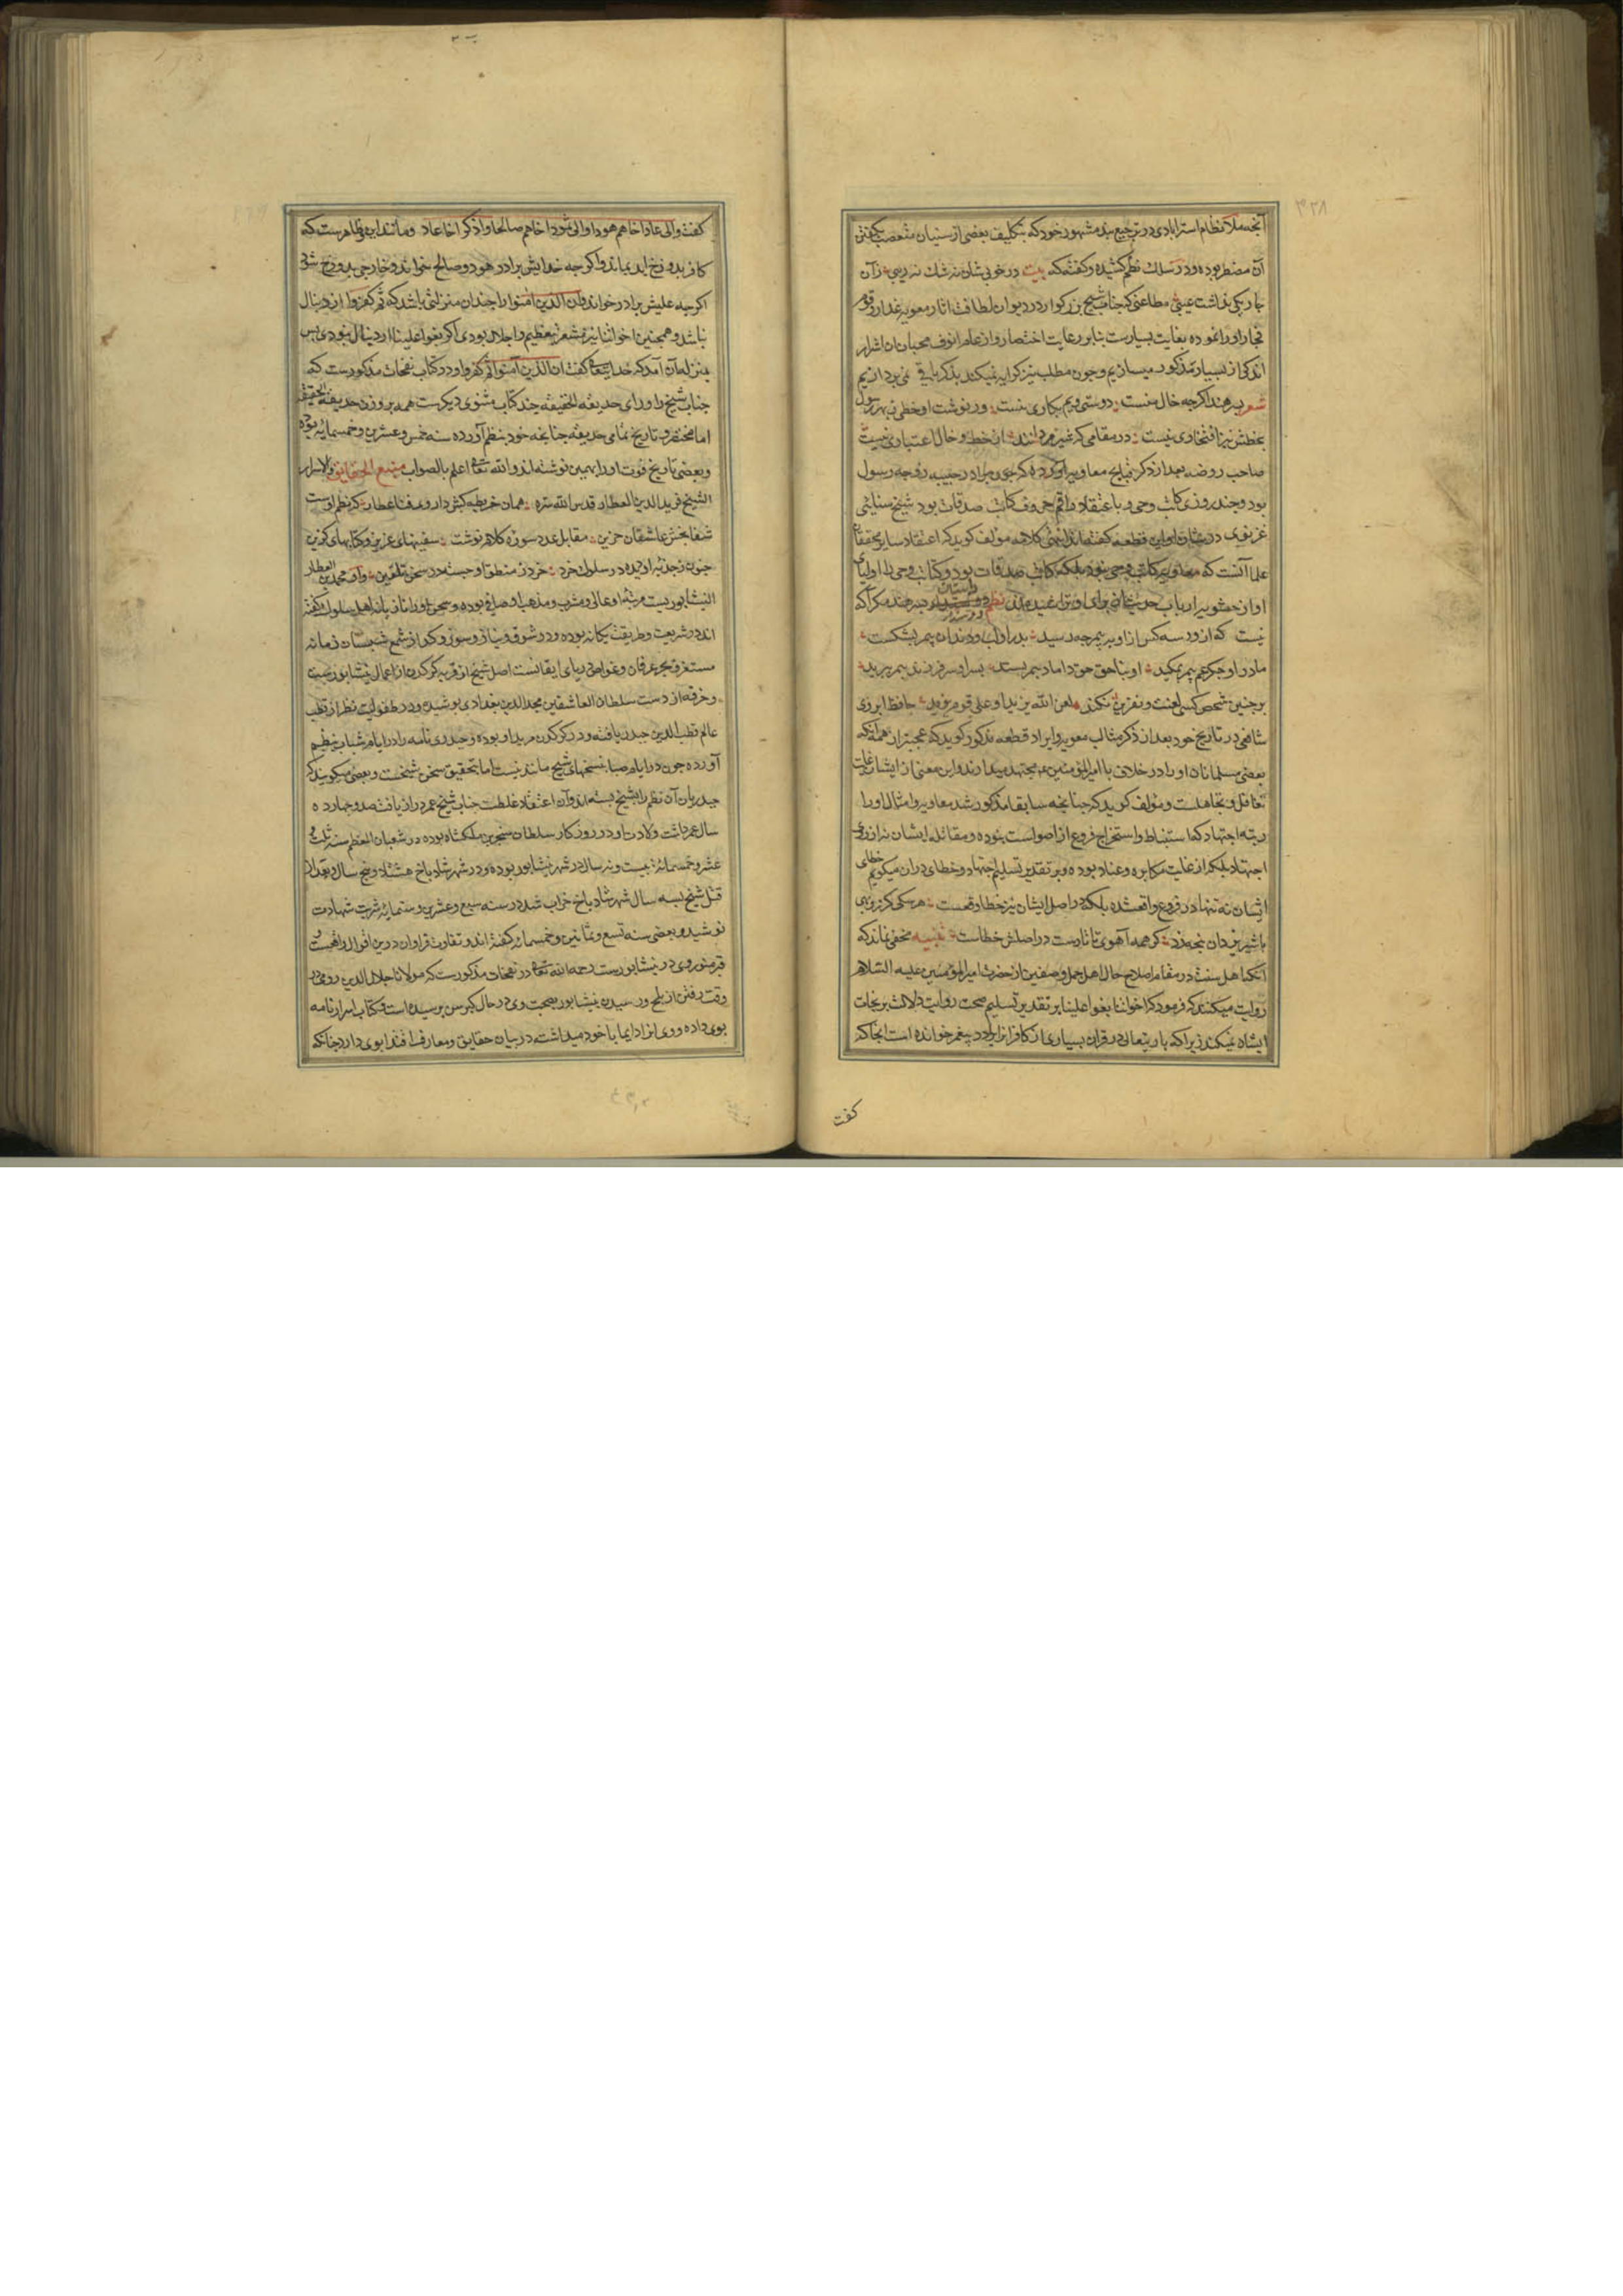 ۴۲۸
آنچه ملا نظام استرابادی در ترجیع بند مشهور خود که بتکلیف بعضی از سنیان متعصب بگفتن
آن مضطر بوده و در سلک نظم کشیده و گفته که بیت در خوبی شان نه شک نه ریبی زآن
چار یکی نداشت عیبی مطاعنی که جناب شیخ بزرگوار در دیوان لطافت آثار معویه غدار رقوم
تجار او را نموده بغایت بسیارست بنابر رعایت اختصار و از غام انوف محبان آن اشرار
اندکی از بسیار مذکور میسازیم و چون مطلب نیز کرایه نمیکند بذکر باقی نمی پردازیم
شعر پیر هند اگرچه خال منست دوستی ویم بکاری نیست ور نوشت او خطی ز بهر رسول
بخطش نیز افتخاری نیست در مقامی که شیر مردانند از خط و خال اعتباری نیست
صاحب روضه بعد از ذکر قبایح معاویه آورده که چون برادر حبیبه زوجه رسول
بود و چند روزی کاتب وحی و باعتقاد راقم حروف کاتب صدقات بود شیخ سنایی
غزنوی در شان او این قطعه گفته اند انتهی کلامه مؤلف گوید که اعتقاد سایر محققان
علما آنست که معاویه کاتب وحی نبود بلکه کاتب صدقات بود و کتابت وحی را اولیای
او از حشویه ارباب حدیث برای او تراشیده اند نظم داستان پسر هند مگر آنکه
نیست که از و سه کس از او به پیمبر چه رسید پدر او لب و دندان پیمبر بشکست
مادر او جگر عم پیمبر بمکید او بناحق حق داماد پیمبر بستد پسر او سر فرزند پیمبر ببرید
بر چنین شخص کسی لعنت و نفرین نکند لعن الله یزیدا و علی قوم یزید حافظ ابروی
شافعی در تاریخ خود بعد از ذکر مثالب معویه و ایراد قطعه مذکور گوید که عجبتر از همه آنکه
بعضی مسلمانان او را در خلاف با امیر المؤمنین ع مجتهد میدارند و این معنی از ایشان غایت
تغافل و تجاهلست و مؤلف گوید که چنانچه سابقا مذکور شد معاویه و امثال او را
رتبه اجتهاد که استنباط و استخراج فروع از اصولست نبوده و مقاتله ایشان نه از روی
اجتهاد بلکه از غایت مکابره و عناد بوده و بر تقدیر تسلیم اجتهاد و خطای در آن میگویم خطای
ایشان نه تنها در فروع واقعشده بلکه در اصل ایشان نیز خطا واقعست هر سگی کز روبهی
با شیر یزدان پنجه زد گر همه آهوی تاتارست در اصلش خطاست تنبیه مخفی نماند که
آنکه اهل سنت در مقام اصلاح حال اهل جمل و صفین از حضرت امیر المؤمنین علیه السلام
روایت میکنند که فرمود که اخواننا بغوا علینا بر تقدیر تسلیم صحت روایت دلالت بر نجات
ایشان نمیکند زیرا که باریتعالی در قران بسیاری از کافرانرا برادر پیغمبر خوانده است آنجا که
کفت
گفت و الی عاد اخاهم هودا و الی ثمود اخاهم صالحا و اذکر اخا عاد و مانند این و ظاهرست که
کافر بدوزخ ابد بماند و اگرچه خدایش برادر هود و صالح خواند و خارجی بدوزخ شود
اگرچه علیش برادر خواند و ان الذین امنوا را چندان منزلتی باشد که ثم کفروا از دنبال
نباشد و همچنین اخواننا نیز مشعر بتعظیم و اجلال بودی اگر بغوا علینا از دنبال نبودی پس
بمنزله آن آمد که خدایتعالی گفت ان الذین آمنوا ثم کفروا و در کتاب نفحات مذکورست که
جناب شیخ را ورای حدیقه الحقیقه چند کتاب مثنوی دیگرست همه بر وزن حدیقه الحقیقه
اما مختصر و تاریخ تمامی حدیقه چنانچه خود بنظم آورده سنه خمس و عشرین و خمسمائه بوده
و بعضی تاریخ فوت او را همین نوشته اند و الله تعالی اعلم بالصواب منبع الحقایق و الاسرار
الشیخ فرید الدین العطار قدس الله سره همان خریطه کش داروی فنا عطار که نظم اوست
شفا بخش عاشقان حزین مقابل عدد سوره کلام نوشت سفینهای عزیز و کتابهای گزین
جنون ز جذبه او دیده در سلوک خرد خرد ز منطق او جسته در سخن تلقین و آن محمد بن العطار
النیشابوریست مرتبه او عالی و مشرب و مذهب او صافی بوده و سخن او را تازیانه اهل سلوک گفته
اند در شریعت و طریقت یگانه بوده و در شوق و نیاز و سوز و گداز شمع شبستان زمانه
مستغرق بحر عرفان و غواص دریای ایقانست اصل شیخ از قریه کدکن از اعمال نیشابورست
و خرقه از دست سلطان العاشقین مجد الدین بغدادی پوشیده و در طفولیت نظر از قطب
عالم قطب الدین حیدر یافته و در کدکن مرید او بوده و حیدری نامه را در ایام شباب بنظم
آورده چون در ایام صبا بسخنهای شیخ مانند نیست اما بتحقیق سخن شیخست و بعضی میگویند که
حیدریان آن نظم را بشیخ بسته اند و آن اعتقاد غلطست جناب شیخ عمر دراز یافت صد و چهارده
سال عمر داشت ولادت او در روزگار سلطان سنجر بن ملکشاه بوده در شعبان المعظم سنه ثلث و
عشر و خمسمائه بیست و نه سال در شهر نیشابور بوده و در شهر شادیاخ هشتاد و پنج سال و بعد از
قتل شیخ بسه سال شهر شادیاخ خراب شد در سنه سبع و عشرین و ستمائه شربت شهادت
نوشید و بعضی سنه تسع و ثمانین و خمسمائه گفته اند و تفاوت فراوان درین اقوال واقعست و
قبر منور وی در نیشابورست رحمه الله تعالی در نفحات مذکورست که مولانا جلال الدین رومی در
وقت رفتن از بلخ و رسیدن بنیشابور بصحبت وی در حال کبر سن رسیده است و کتاب اسرار نامه
بوی داده و وی انرا دایما با خود میداشته در بیان حقایق و معارف اقتدا بوی دارد چنانکه